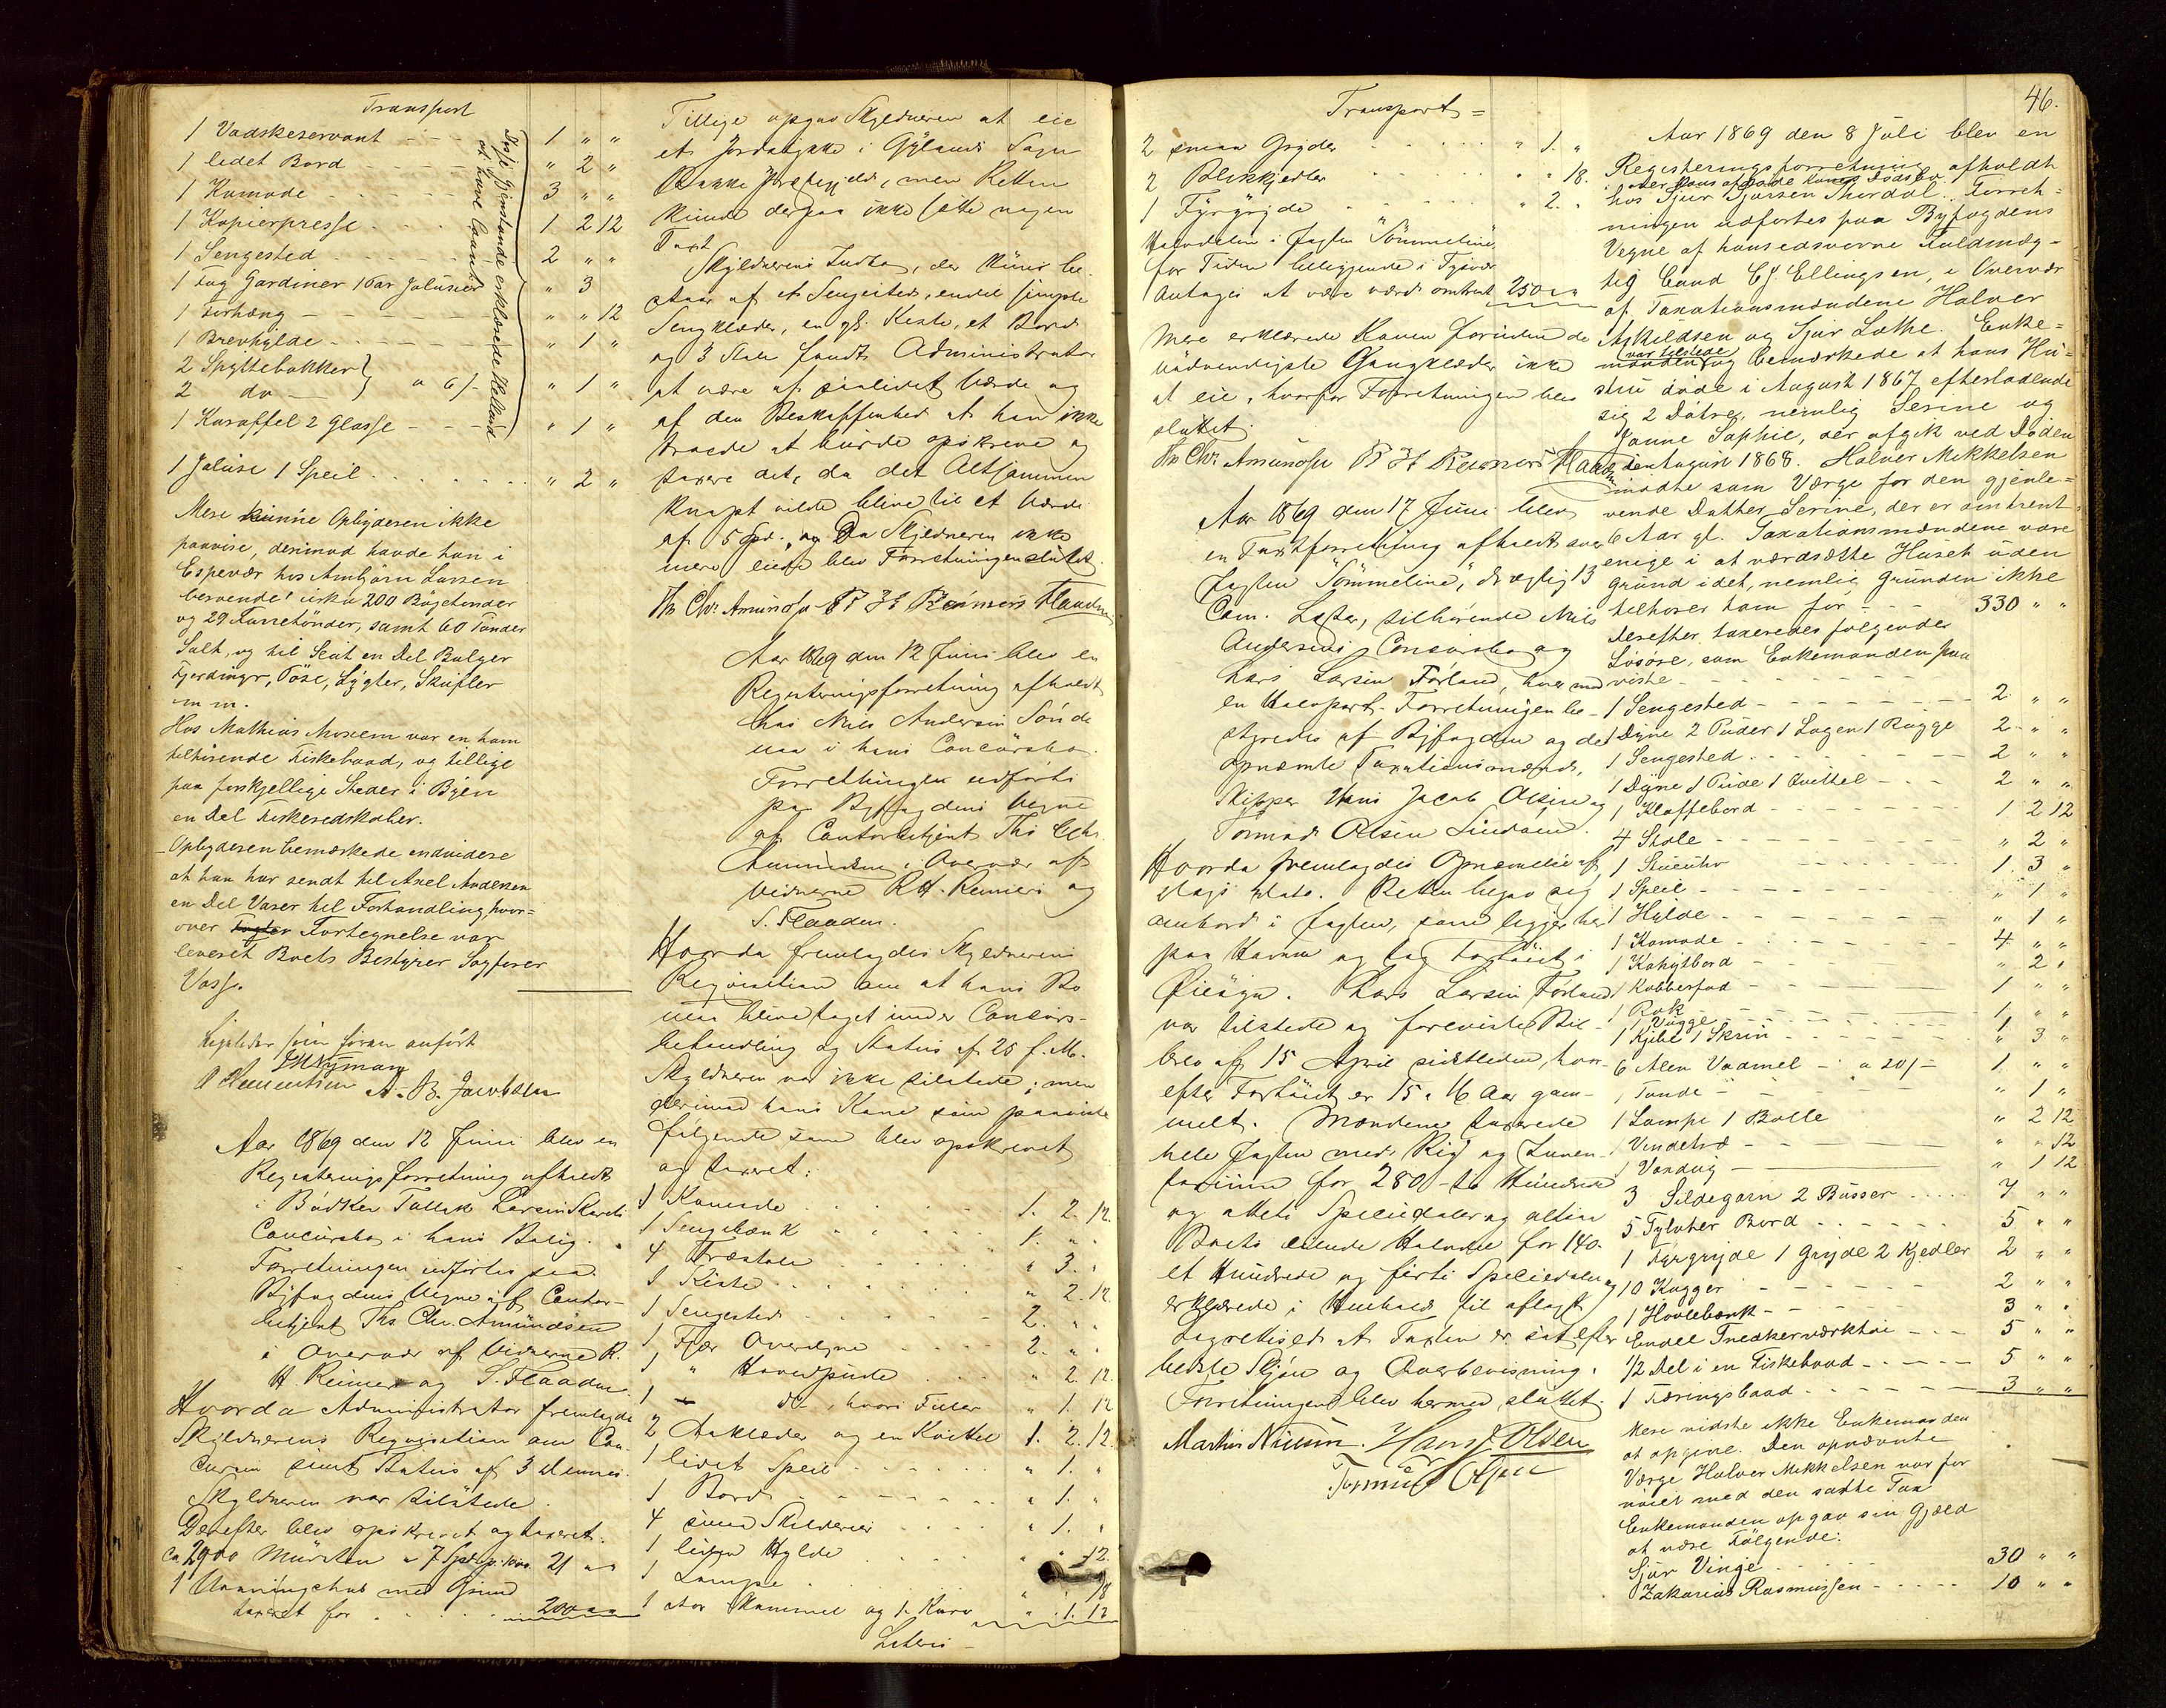 Transport
1 Vadskeservant - - - 1 " "
1 lidet Bord - - - " 2 "
1 Komode - - - 3 " "
1 Kopierpresse - - - 1 2 12
1 Sengested - - - 2 " "
1 Fag Gardiner 1 Par Jalusier " 3
1 Forhæng - - - " " 12
1 Brevhylde - - - " 1 "
2 Spyttebakker }
2 do } a 6 /- " 1 "
1 Karaffel 2 Glasse - - - " 1 "
Disse Gjenstande erklærede Helland
at have laant
1 Jalusi 1 Speil - - - " 2 "
Mere kunne Opbyderen ikke
paavise, derimod havde han i
Espevær hos Ambjörn Larsen
beroende cirka 200 Bögetönder
og 29 Furretönder, samt 60 Tönder
Salt, og til Leie en Del Balger
Fjerdinger, Töse, Lygter, Skufler
m m.
Hos Mathias Mosiem var en ham
tilhörende Fiskebaad, og tillige
paa forskjellige Steder i Byen
en Del Fiskeredskaber.
Opbyderen bemærkede endvidere
at han har sendt til Axel Andersen
en Del Varer til Forhandling hvor=
over Fortegnelse var
leveret Boets Bestyrer Sagförer
Voss.
foran anfört
A. B. Jacobsen
Aar 1869 den 12 Juni blev en
Registeringsforretning afholdt
i Bödker Tallak Larsen
Concursbo i hans Bolig.
Forretningen udförtes paa
Byfogdens Vegne af Contor-
betjent Ths Chr. Amundsen
i Overvær af Vidnerne R.
H. Reimers og S. Flaaden.
Hvorda Administrator fremlagde
Skyldnerens Requisition om Con-
cursen samt Status af 3 dennes.
Skyldneren var tilstede.
Derefter blev opskrevet og taxeret.
ca 2900 Mursten a 7 Spd. p. 21 " "
1 Vaaningshus med Grund
taxeret for - - - 200 " "
Tillige opgav Skyldneren at eie
et Jordstykke i Gylands Sogn
Bakke Præstegjeld, men Retten
kunde derpaa ikke sætte nogen
Taxt
Skyldnerens Indbo, der kuns be-
staar af et Sengested, endel simple
Sengklæder, en gl. Kiste, et Bord
og 3 Stole fandt Administrator
at være af saa lidet Værd og
af den Beskaffenhed at han ikke
troede at burde opskrive og
taxere det, da det Altsammen
knapt vilde blive til et Værdi
af 5 Spd. og Da Skyldneren ikke
mere eiede blev Forretningen sluttet.
Ths Chr. Amundsen R H Reimers Flaaden
Aar 1869 den 12 Juni blev en
Registeringsforretning afholdt
hos Nils Andersen Sönde-
naa i hans Concursbo.
Forretningen udförtes
paa Byfogdens Vegne
af Contorbetjent Ths Chr.
Amundsen i Overvær af
Vidnerne R H. Reimers og
S. Flaaden.
Hvorda fremlagdes Skyldnerens
Reqvisition om at hans Bo
maa blive taget under Concurs-
behandling og Status af 25 f. M.
Skyldneren var ikke tilstede; men
derimod hans Kone som paaviste
fölgende som blev opskrevet
og taxeret:
1 Komode - - - 1. 2. 12.
1 Sengebænk - - - 1. " "
4 Træstole - - - " 3. "
1 Kiste - - - " 2. 12
1 Sengested - - - 2. " "
1 Fjær Overdyne - - - 2. " "
1 " Hovedpude - - - " 2 12.
1 — do, hvori Fuer " 1. 12
2 Aaklæder og en Kvittel 1. 2. 12.
1 lidet Speil - - - " 1. "
1 Bord - - - " 1. "
4 smaa Skilderier - - - " 1. "
1 liden Hylde - - - " " 12.
1 Lampe - - - " " 18
1 stor Skammel og 1 Kurv - - - " 1. 12
Lateris -
46.
Transport =
2 smaa Gryder - - - " 1. "
2 Blikkjedler - - - " " 18.
1 Fyrgryde - - - " 2. "
Halvdelen i Jagten "Sömmeline"
for Tiden beliggende i Tysvær
Antages at være værd omtrent 250 " "
Mere erklærede Konen foruden de
nödvendigste Gangklæder ikke
at eie, hvorfor Forretningen blev
sluttet.
Ths Chr. Amundsen R H Reimers Flaaden
Aar 1869 den 17 Juni blev
en Taxtforretning afholdt over
Jagten "Sömmeline", drægtig 13
Com. Læster, tilhörende Nils
Andersens Concursbo og
Lars Larsen Förland, hver med
en Halvpart. Forretningen be-
styredes af Byfogden og de
opnævnte Taxationsmænd,
Skipper Hans Jacob Olsen og
Tormod Olsen Lindöen.
Hvorda fremlagdes Opnævnelse af
dags dato. Retten begav sig
ombord i Jagten, som ligger her
paa Havnen og tog Fartöiet i
Öiesyn. Lars Larsen Förland
var tilstede og foreviste Bil-
brev af 15 April sidstleden, hvor-
efter Fartöiet er 15 a 16 Aar gam-
melt. Mændene taxerede
hele Jagten med Rig og Inven-
tarium for 280 - to Hundrede
og otteti Speciedaler og altsaa
Boets eiende Halvdel for 140 -
et Hundrede og firti Speciedaler og
erklærede i Henhold til aflagt
Lagrettesed at Taxten er sat efter
bedste Skjön og Overbevisning.
Forretningen blev hermed sluttet.
Martin Nilsen. Hans J Olsen
Tormod Olsen
Aar 1869 den 8 Juli blev en
Registeringsforretning afholdt
i over hans afdöde Kones Dödsbo
hos Sjur Sjursen Thordal. Forret=
ningen udförtes paa Byfogdens
Vegne af hans edsvorne Fuldmæg=
tig Cand C J Ellingsen, i Overvær
af Taxationsmændene Halvor
Askildsen og Sjur Lothe. Enke=
var tilstede
manden og bemærkede at hans Hu=
stru döde i August 1867 efterladende
sig 2 Dötre, nemlig Serine og
Janne Sophie, der afgik ved Döden
i den August 1868. Halvor Mikkelsen
mödte som Værge for den gjenle=
vende Datter Serine, der er omtrent
6 Aar gl. Taxationsmændene vare
enige i at værdsætte Huset uden
Grund idet, nemlig Grunden ikke
tilhörer ham for - - - 330 " "
Derefter taxeredes fölgende
Lösöre, som Enkemanden paa
viste - - -
1 Sengested - - - 2 " "
1 Dyne 2 Puder 1 Lagen 1 Rugge 2 " "
1 Sengested - - - 2 " "
1 Dyne 1 Pude 1 Kvittel - - - 2 " "
1 Klaffebord - - - 1 2 12
4 Stole - - - " 2 "
1 Stueuhr - - - 1. 3 "
1 Speil - - - " 1 "
1 Hylde - - - " 1 "
1 Komode - - - 4 " "
1 Kahytbord - - - " 2 "
1 Kobberfad - - - 1 " "
1 Rok - - - 1 " "
1 Vugge - - - 1 " "
1 Kjibe 1 Skrin - - - " 3 "
6 Alen Vadmel - a 20 /- 1 " "
1 Tönde - - - " 1 "
1 Lampe 1 Bolle " 2 12
1 Vindetræ - - - " " 12
1 Voxdug - - - " 1 12
3 Sildegarn 2 Busser - - - 7 " "
5 Tylvter Bord - - - 5 " "
1 Fyrgryde 1 Gryde 2 Kjedler 2 " "
10 Kagger - - - 2 " "
1 Hövlebænk - - - 3 " "
Endel Snedkerværktöi - - - 5 " "
1/2 Del i en Fiskebaad - - - 5 " "
1 Færingsbaad - - - 3 " "
Mere vidste ikke Enkemanden
at opgive. Den opnævnte
Værge Halvor Mikkelsen var for
nöiet med den satte Tax
Enkemanden opgav sin Gjæld
at være Fölgende:
Sjur Vinge - - - 30 " "
Zakarias Rasmussen - - - 10 " "